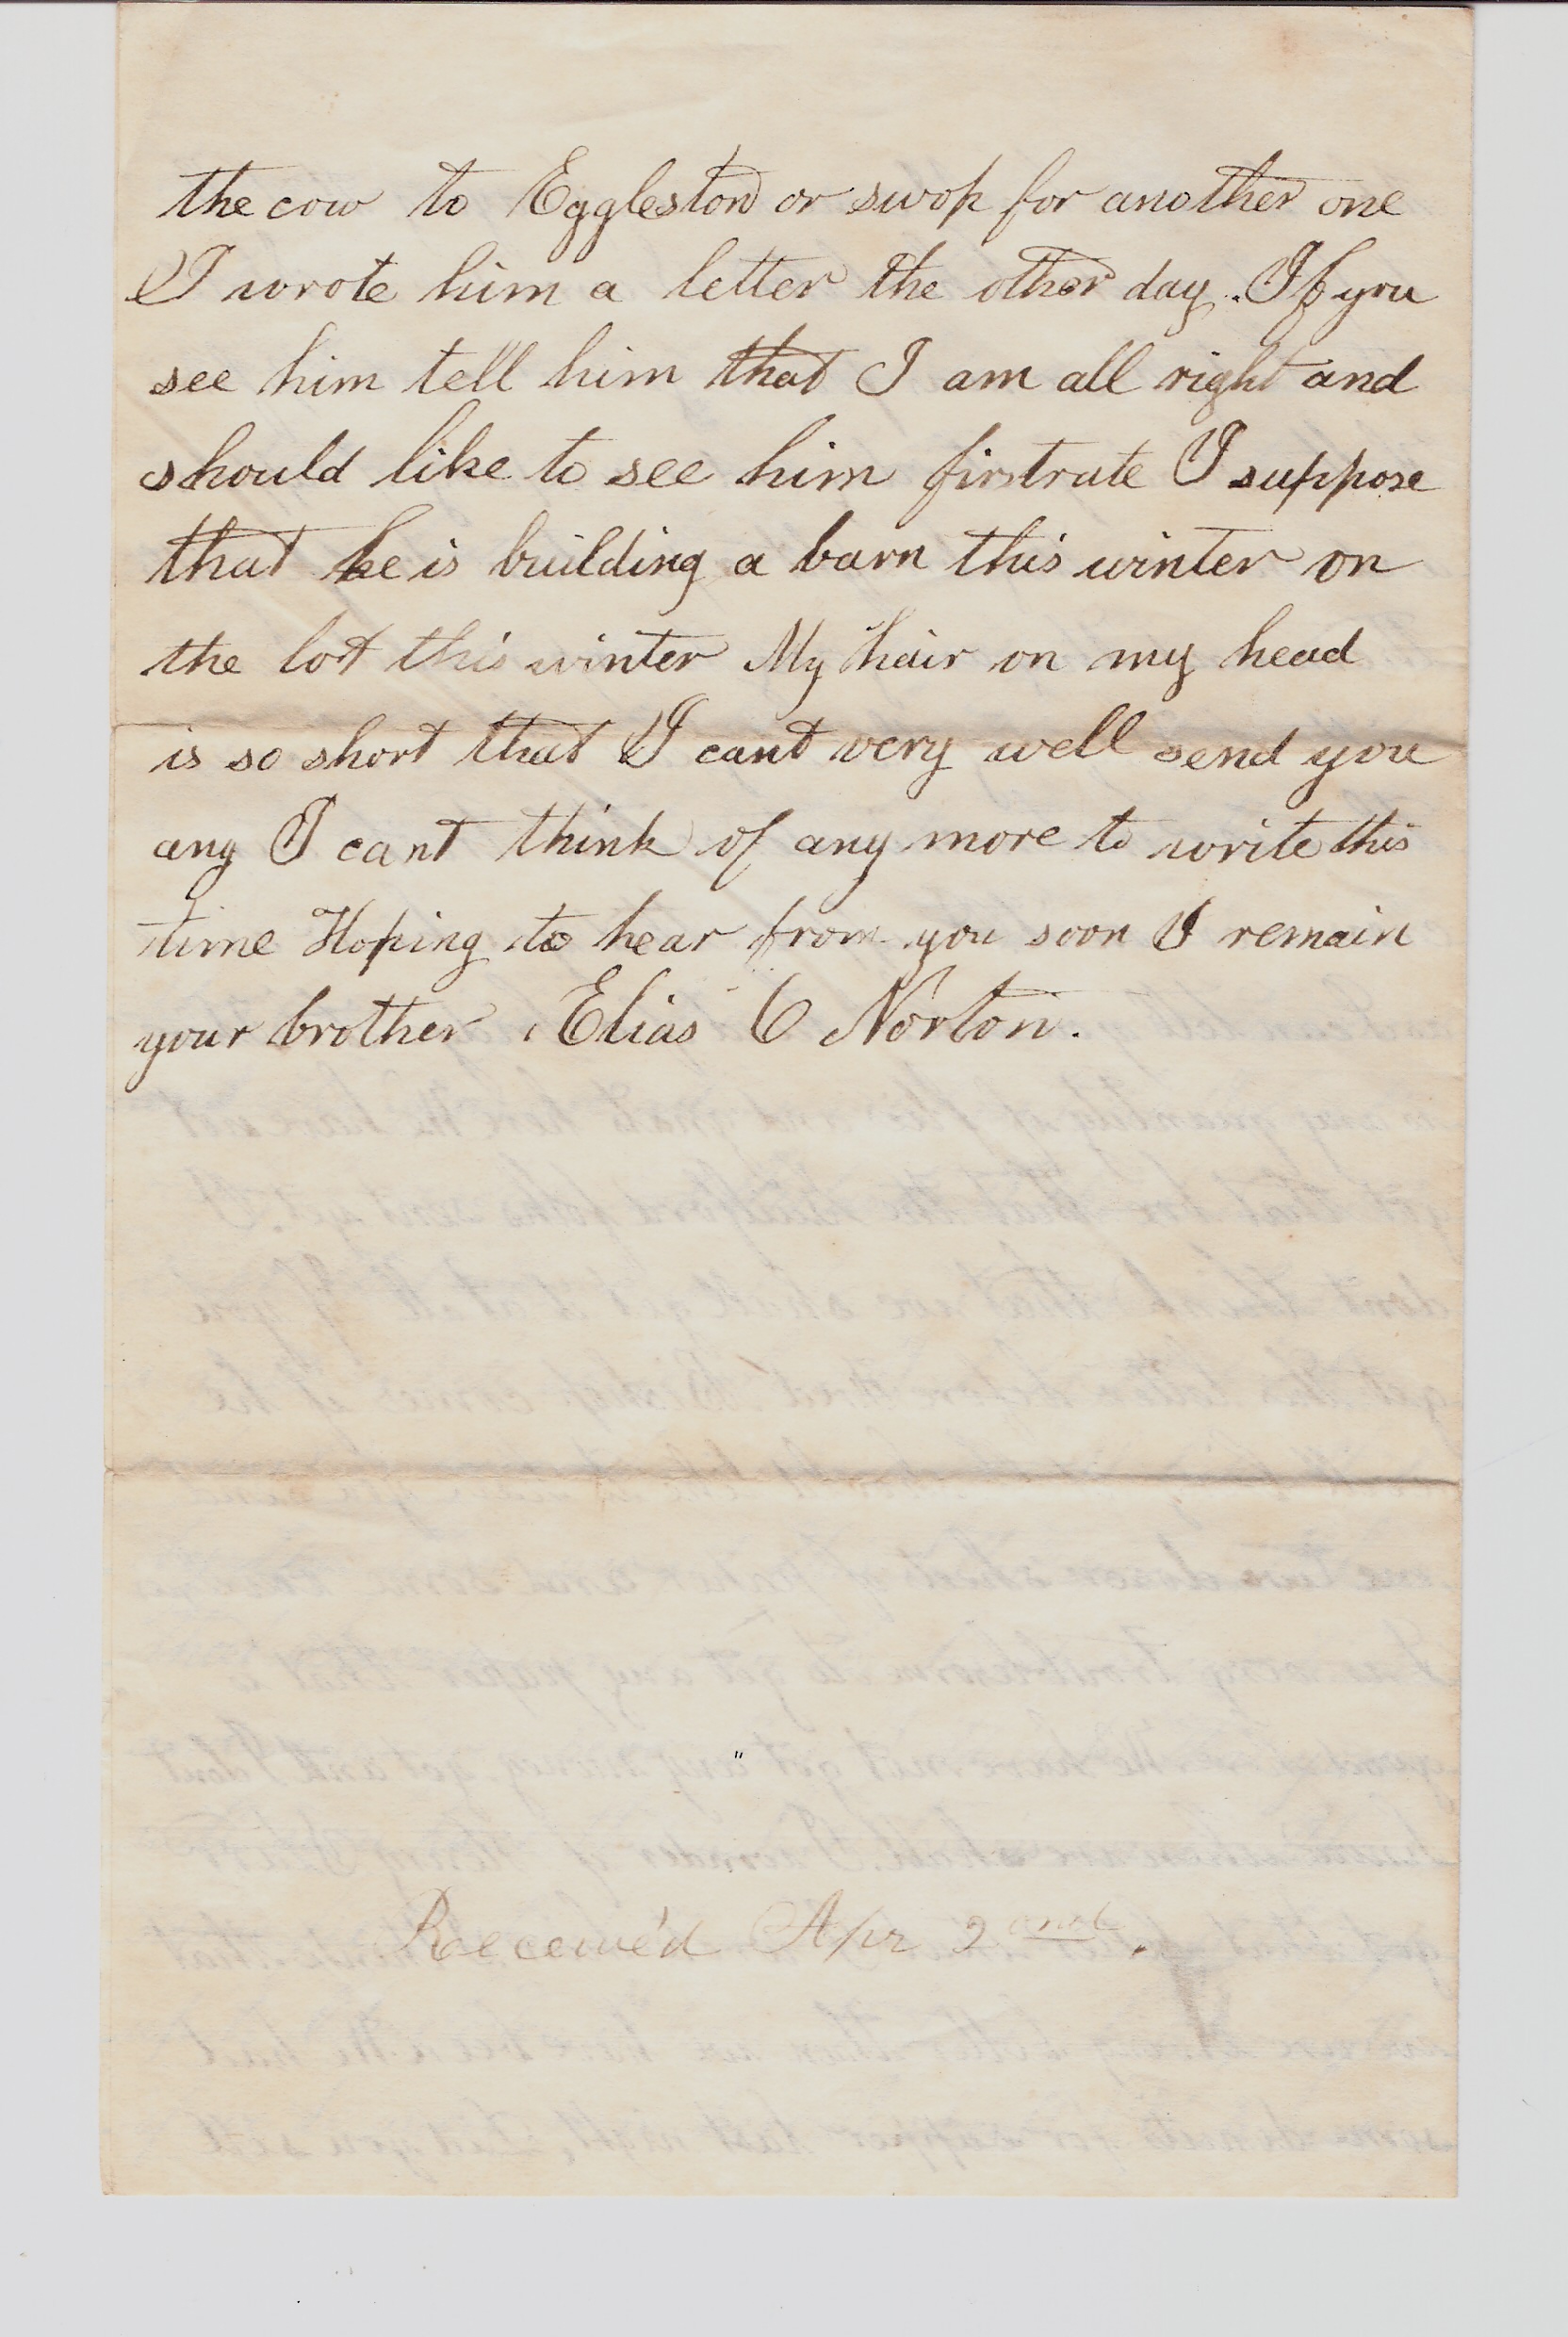 the cow to Eggleston or swop for another one
I wrote him a letter the other day. If you
see him tell him that I am all right and
should like to see him firstrate I suppose
that he is building a barn this winter on
the lot this winter My hair on my head
is so short that I cant very well send you
any I cant think of any more to write this
time Hoping to hear from you soon I remain
your brother Elias C Norton.
Received Apr 2ond.